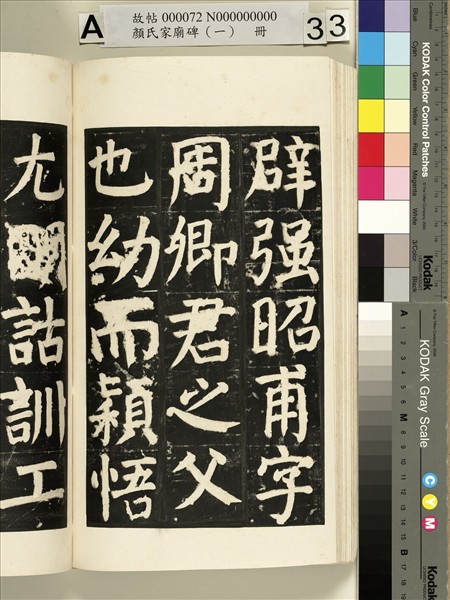 A
故帖 000072 N000000000
顏氏家廟碑（一） 冊
33
辟强昭甫字
周卿君之父
也幼而穎悟
尤
詁訓工
KODAK Color Control Patches
Blue
Cyan
Green
Yellow
Red
Magenta
White
3/Color
Black
Kodak
KODAK Gray Scale
A 1 2 3 4 5 6 M 8 9 10 11 12 13 14 15 B 17 18 19
C Y M
Kodak